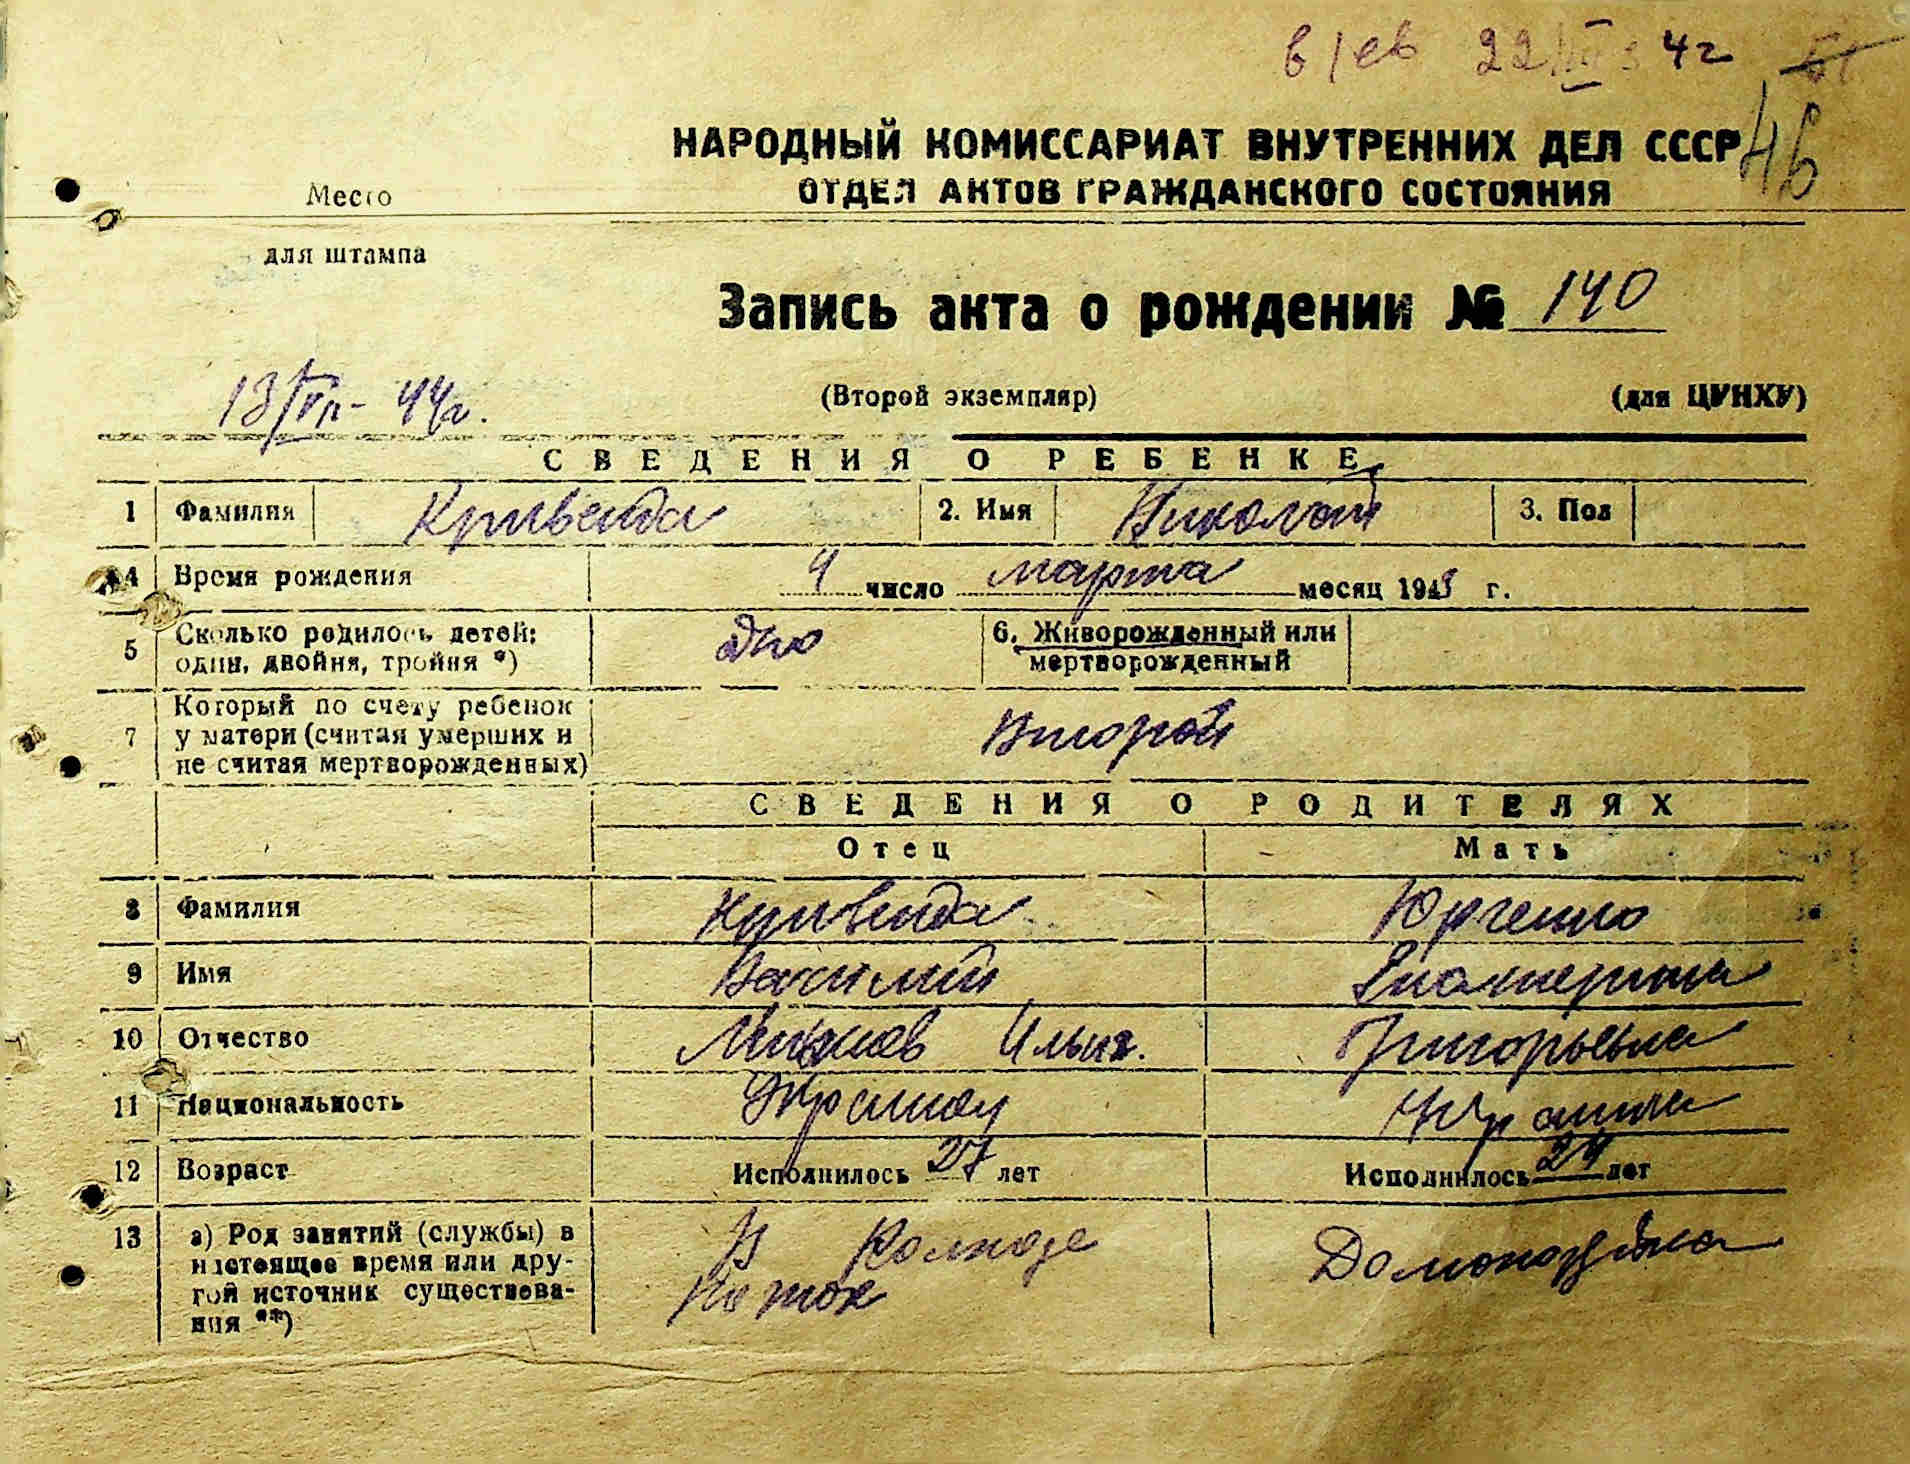 22 4г
46
НАРОДНЫЙ КОМИССАРИАТ ВНУТРЕННИХ ДЕЛ СССР
ОТДЕЛ АКТОВ ГРАЖДАНСКОГО СОСТОЯНИЯ
Место
для штампа
Запись акта о рождении № 140
13/VII - 44г.
(Второй экземпляр) (для ЦУНХУ)
СВЕДЕНИЯ О РЕБЕНКЕ
1 Фамилия Кривенда 2. Имя Николай 3. Пол
4 Время рождения 4 число марта месяц 1943 г.
5 Сколько родилось детей: один, двойня, тройня *) 6. Живорожденный или мертворожденный
7 Который по счету ребенок у матери (считая умерших и не считая мертворожденных) Второй
СВЕДЕНИЯ О РОДИТЕЛЯХ
Отец Мать
8 Фамилия Кривенда Юрченко
9 Имя Василий Екатерина
10 Отчество Ильич. Григорьевна
11 Национальность Украинец
12 Возраст Исполнилось 27 лет Исполнилось 24 лет
13 а) Род занятий (службы) в настоящее время или другой источник существования **) В Колхозе Домохозяйка